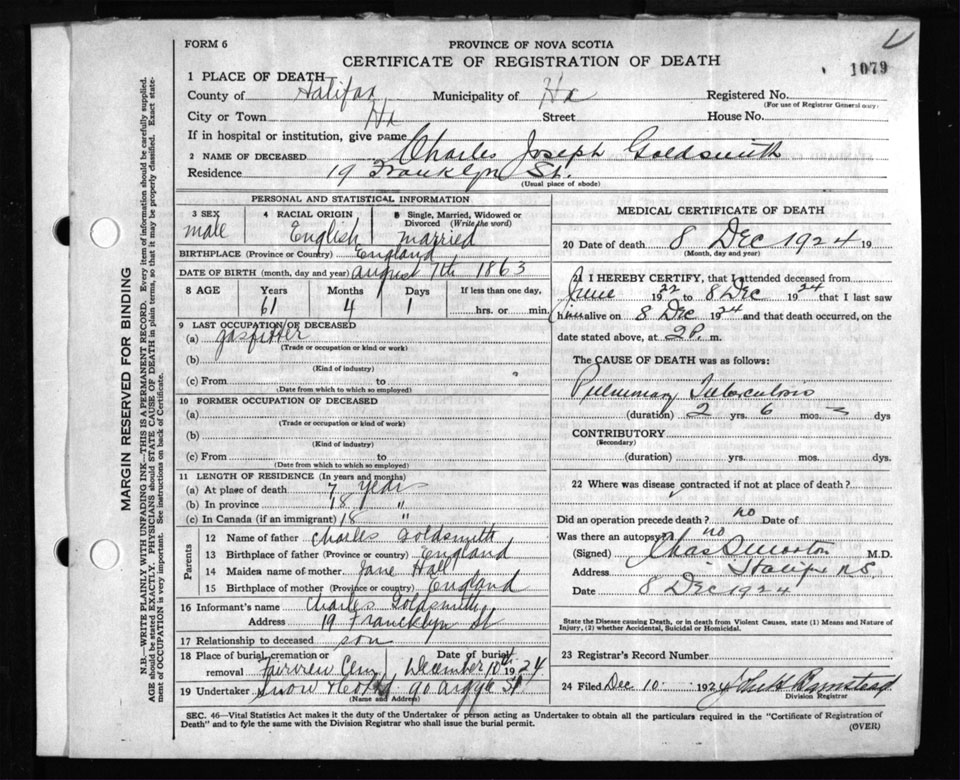 FORM 6
PROVINCE OF NOVA SCOTIA
CERTIFICATE OF REGISTRATION OF DEATH
1079
1 PLACE OF DEATH
County of Halifax Municipality of Hx Registered No.
(For use of Registrar General only)
City or Town Hx Street House No.
If in hospital or institution, give name
2 NAME OF DECEASED Charles Joseph Goldsmith
Residence 19 Franklyn St.
(Usual place of abode)
PERSONAL AND STATISTICAL INFORMATION
3 SEX 4 RACIAL ORIGIN 5 Single, Married, Widowed or Divorced (Write the word)
male English married
BIRTHPLACE (Province or Country) England
DATE OF BIRTH (month, day and year) august 7th 1863
8 AGE Years Months Days If less than one day,
61 4 1 hrs. or min.
9 LAST OCCUPATION OF DECEASED
(a) gasfitter
(Trade or occupation or kind of work)
(b)
(Kind of industry)
(c) From to
(Date from which to which so employed)
10 FORMER OCCUPATION OF DECEASED
(a)
(Trade or occupation or kind of work)
(b)
(Kind of industry)
(c) From to
(Date from which to which so employed)
11 LENGTH OF RESIDENCE (In years and months)
(a) At place of death 7 years
(b) In province 18 "
(c) In Canada (if an immigrant) 18 "
Parents
12 Name of father Charles Goldsmith
13 Birthplace of father (Province or country) England
14 Maiden name of mother Jane Hall
15 Birthplace of mother (Province or country) England
16 Informant's name Charles Goldsmith
Address 19 Francklyn St
17 Relationship to deceased son
18 Place of burial, cremation or removal Fairview Cem Date of burial December 10th 1924
19 Undertaker Snow & Co Ltd 90 argyle St
(Name and Address)
MEDICAL CERTIFICATE OF DEATH
20 Date of death 8 Dec 1924 19
(Month, day and year)
I HEREBY CERTIFY, that I attended deceased from
June 1922 to 8 Dec 1924 that I last saw
him alive on 8 Dec 1924 and that death occurred, on the
date stated above, at 2 P. m.
The CAUSE OF DEATH was as follows:
Pulmonary Tuberculosis
(duration) 2 yrs. 6 mos. dys
CONTRIBUTORY
(Secondary)
(duration) yrs. mos. dys.
22 Where was disease contracted if not at place of death?
Did an operation precede death? no Date of
Was there an autopsy? no
(Signed) Chas S Morton M.D.
Address Halifax N.S.
Date 8 Dec 1924
State the Disease causing Death, or in death from Violent Causes, state (1) Means and Nature of Injury, (2) whether Accidental, Suicidal or Homicidal.
23 Registrar's Record Number
24 Filed Dec 10 1924
Division Registrar
SEC. 46—Vital Statistics Act makes it the duty of the Undertaker or person acting as Undertaker to obtain all the particulars required in the "Certificate of Registration of
Death" and to file the same with the Division Registrar who shall issue the burial permit.
(OVER)
MARGIN RESERVED FOR BINDING
N.B.—WRITE PLAINLY WITH UNFADING INK—THIS IS A PERMANENT RECORD. Every item of information should be carefully supplied.
AGE should be stated EXACTLY. PHYSICIANS should STATE CAUSE OF DEATH in plain terms, so that it may be properly classified. Exact statement of OCCUPATION is very important. See instructions on back of Certificate.